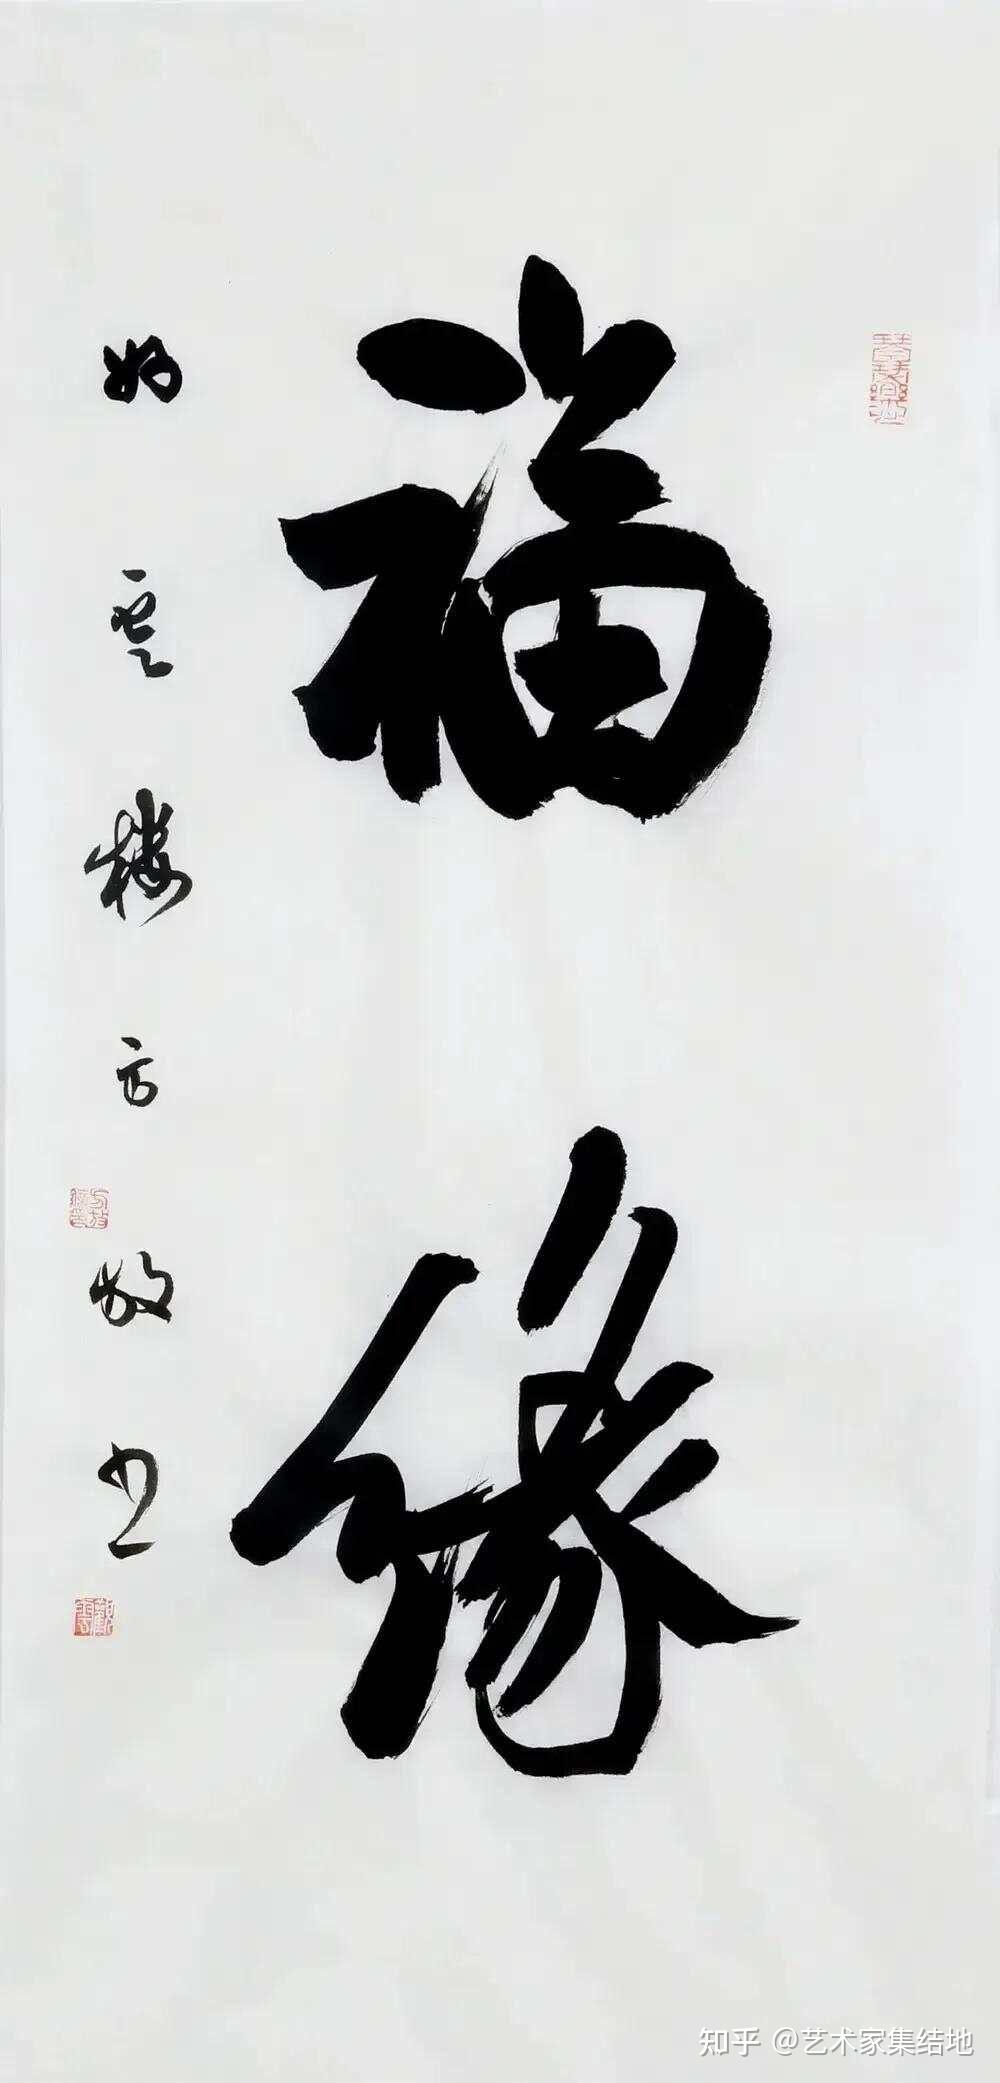 福缘
好云楼方放书
知乎 @艺术家集结地